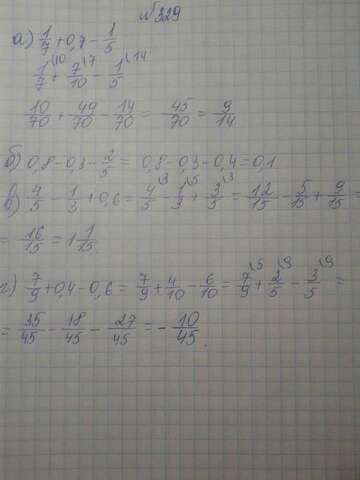 №329
а) 1/7 + 0,7 - 1/5
1\10/7 + 7\7/10 - 1\14/5
10/70 + 49/70 - 14/70 = 45/70 = 9/14
б) 0,8 - 0,3 - 2/5 = 0,8 - 0,3 - 0,4 = 0,1
в) 4/5 - 1/3 + 0,6 = 4\3/5 - 1\5/3 + 3\3/5 = 12/15 - 5/15 + 9/15 =
= 16/15 = 1 1/15
г) 7/9 + 0,4 - 0,6 = 7/9 + 4/10 - 6/10 = 7\5/9 + 2/5 - 3\9/5 =
= 35/45 - 18/45 - 27/45 = - 10/45.